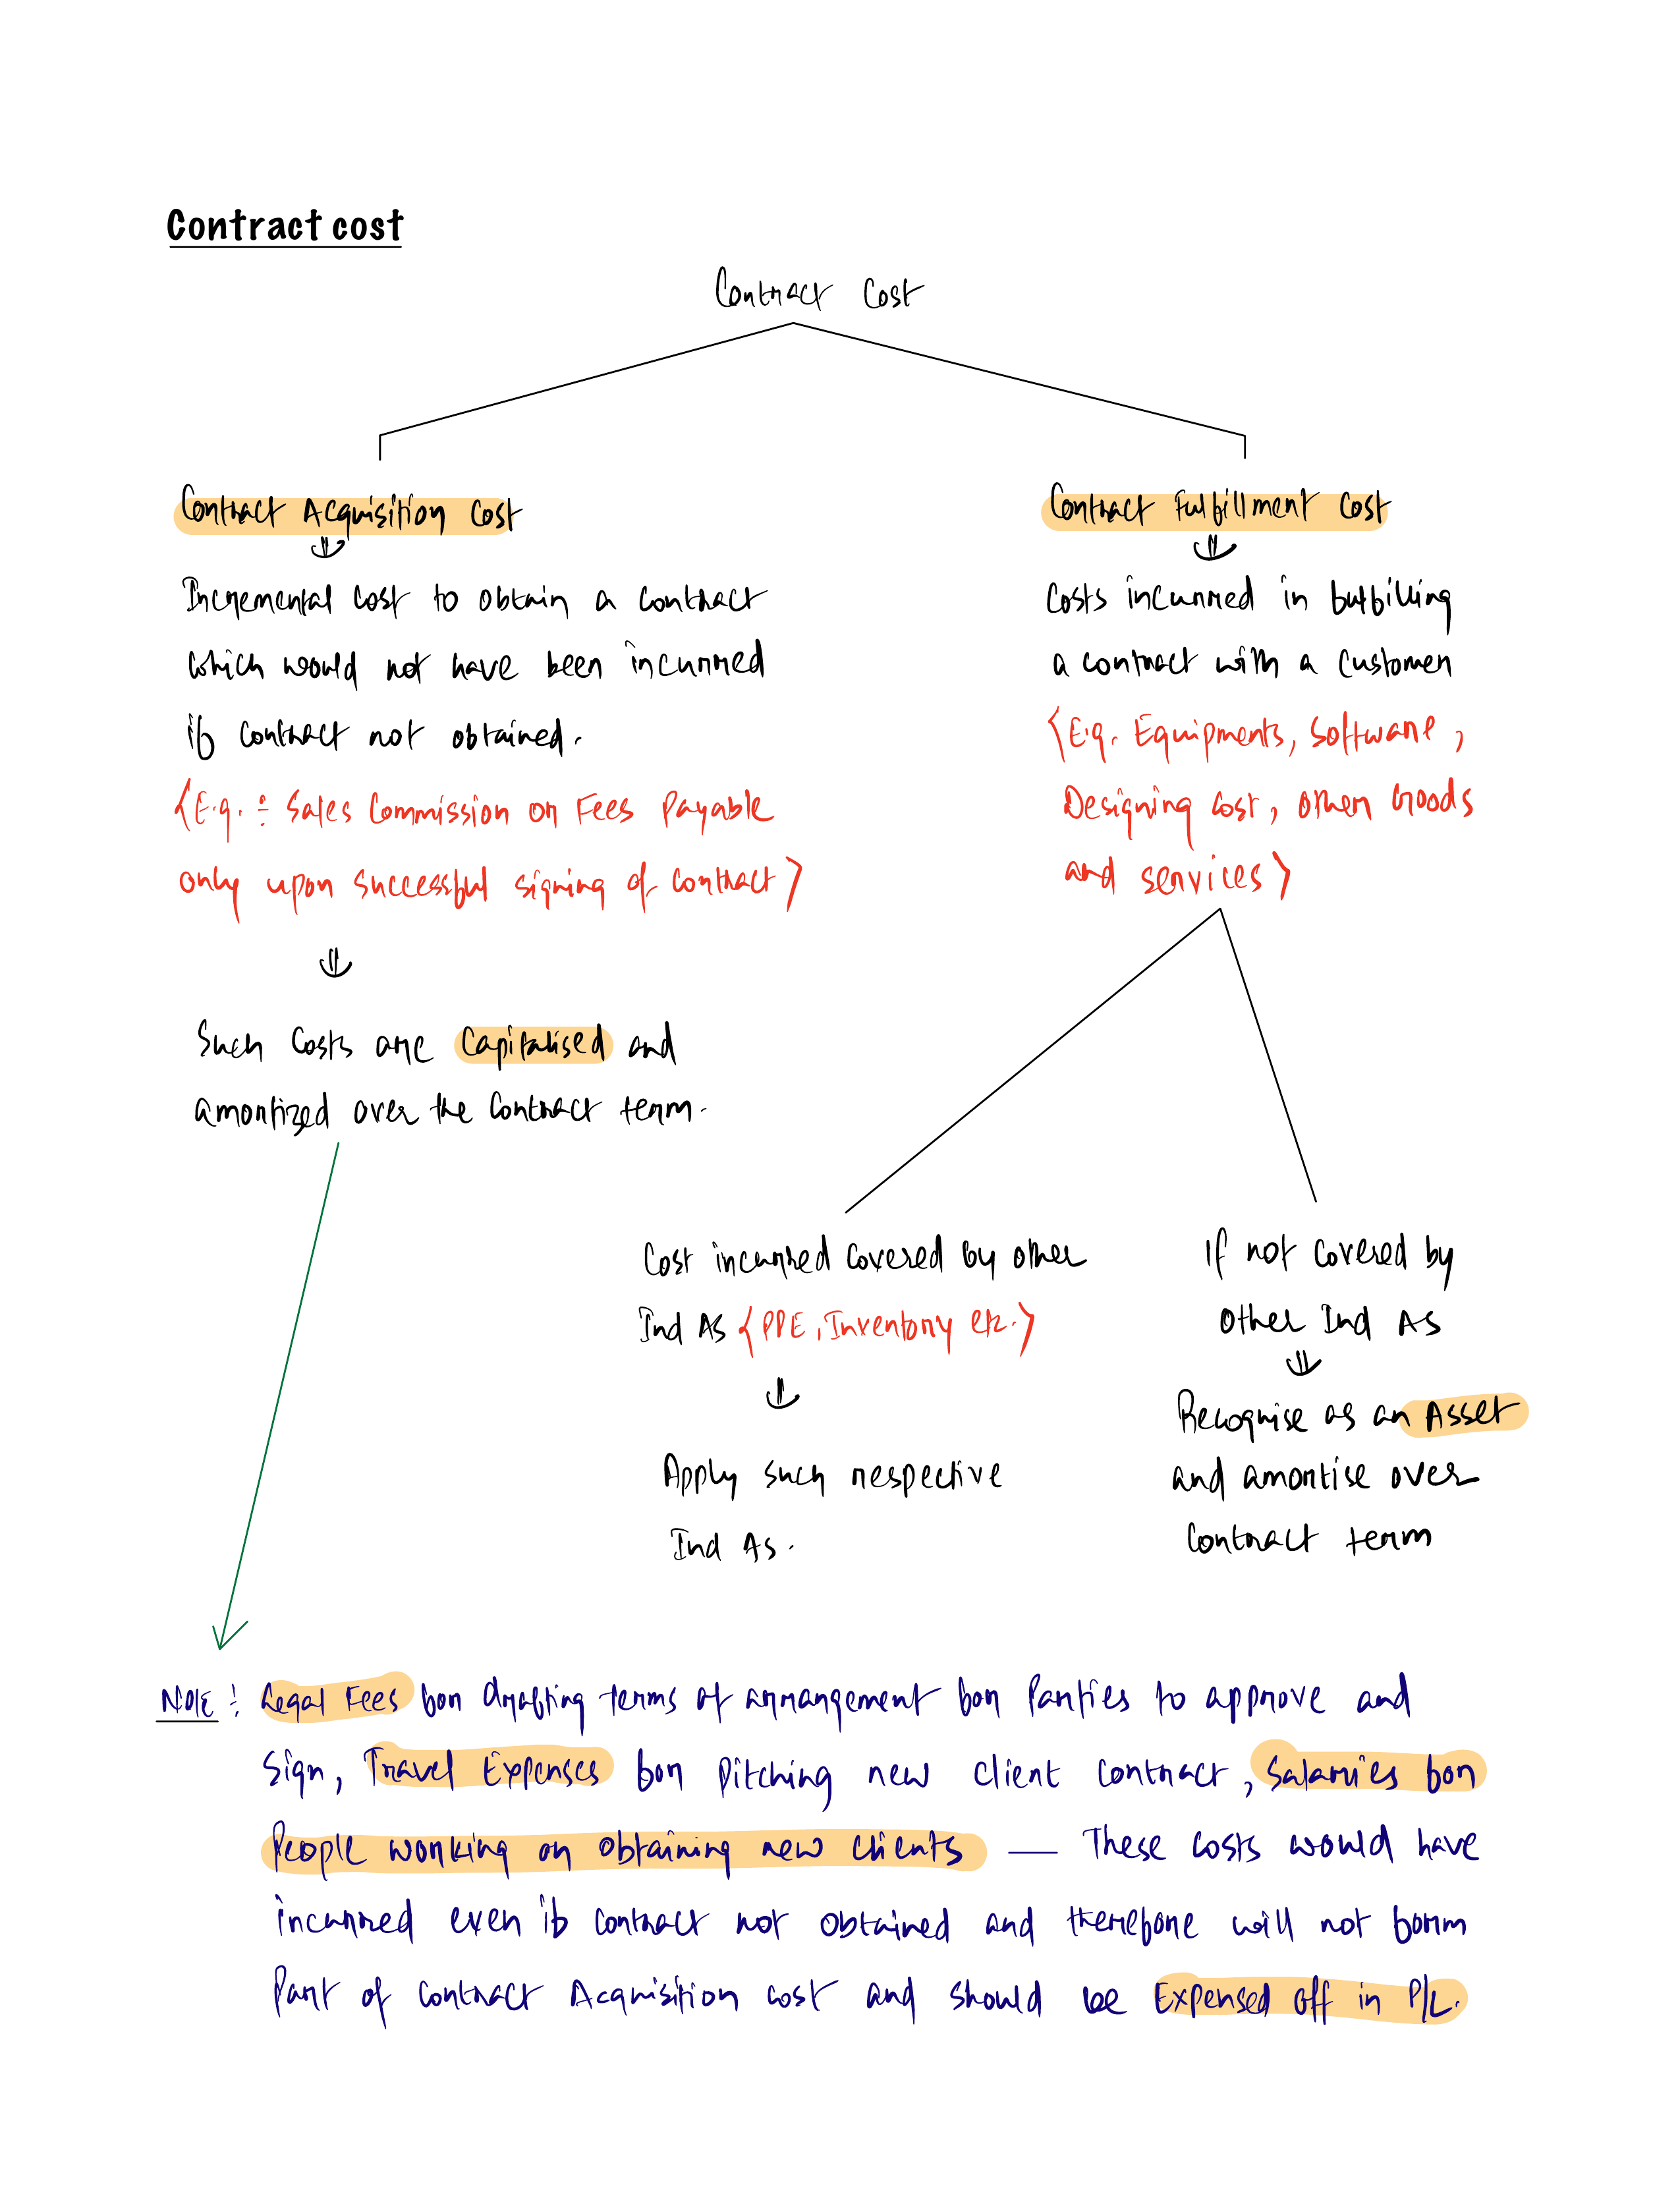 Contract cost
Contract Cost
Contract Acquisition Cost
Incremental cost to obtain a contract
which would not have been incurred
if contract not obtained.
{E.g. :- Sales Commission or Fees Payable
only upon successful signing of contract}
Such Costs are Capitalised and
amortized over the contract term.
Contract Fulfillment Cost
Costs incurred in fulfilling
a contract with a customer
{E.g. Equipments, Software,
Designing cost, other Goods
and services}
Cost incurred covered by other
Ind AS {PPE, Inventory etc.}
Apply such respective
Ind AS.
If not covered by
other Ind AS
Recognise as an Asset
and amortise over
contract term
Note :- Legal Fees for drafting terms of arrangement for Parties to approve and
sign, Travel Expenses for pitching new client contract, Salaries for
People working on obtaining new clients — These costs would have
incurred even if contract not obtained and therefore will not form
Part of contract Acquisition cost and should be Expensed off in P/L.